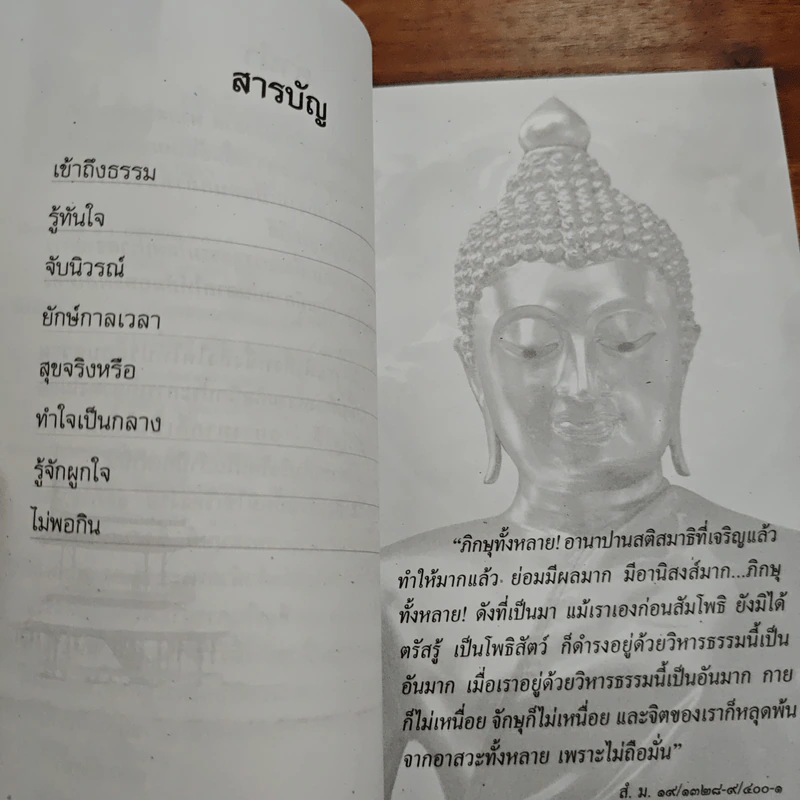 สารบัญ
เข้าถึงธรรม
รู้ทันใจ
จับนิวรณ์
ยักษ์กาลเวลา
สุขจริงหรือ
ทำใจเป็นกลาง
รู้จักผูกใจ
ไม่พอกิน
“ภิกษุทั้งหลาย! อานาปานสติสมาธิที่เจริญแล้ว
ทำให้มากแล้ว ย่อมมีผลมาก มีอานิสงส์มาก...ภิกษุ
ทั้งหลาย! ดังที่เป็นมา แม้เราเองก่อนสัมโพธิ ยังมิได้
ตรัสรู้ เป็นโพธิสัตว์ ก็ดำรงอยู่ด้วยวิหารธรรมนี้เป็น
อันมาก เมื่อเราอยู่ด้วยวิหารธรรมนี้เป็นอันมาก กาย
ก็ไม่เหนื่อย จักษุก็ไม่เหนื่อย และจิตของเราก็หลุดพ้น
จากอาสวะทั้งหลาย เพราะไม่ถือมั่น”
สํ. ม. ๑๙/๑๓๒๘-๙/๔๐๐-๑